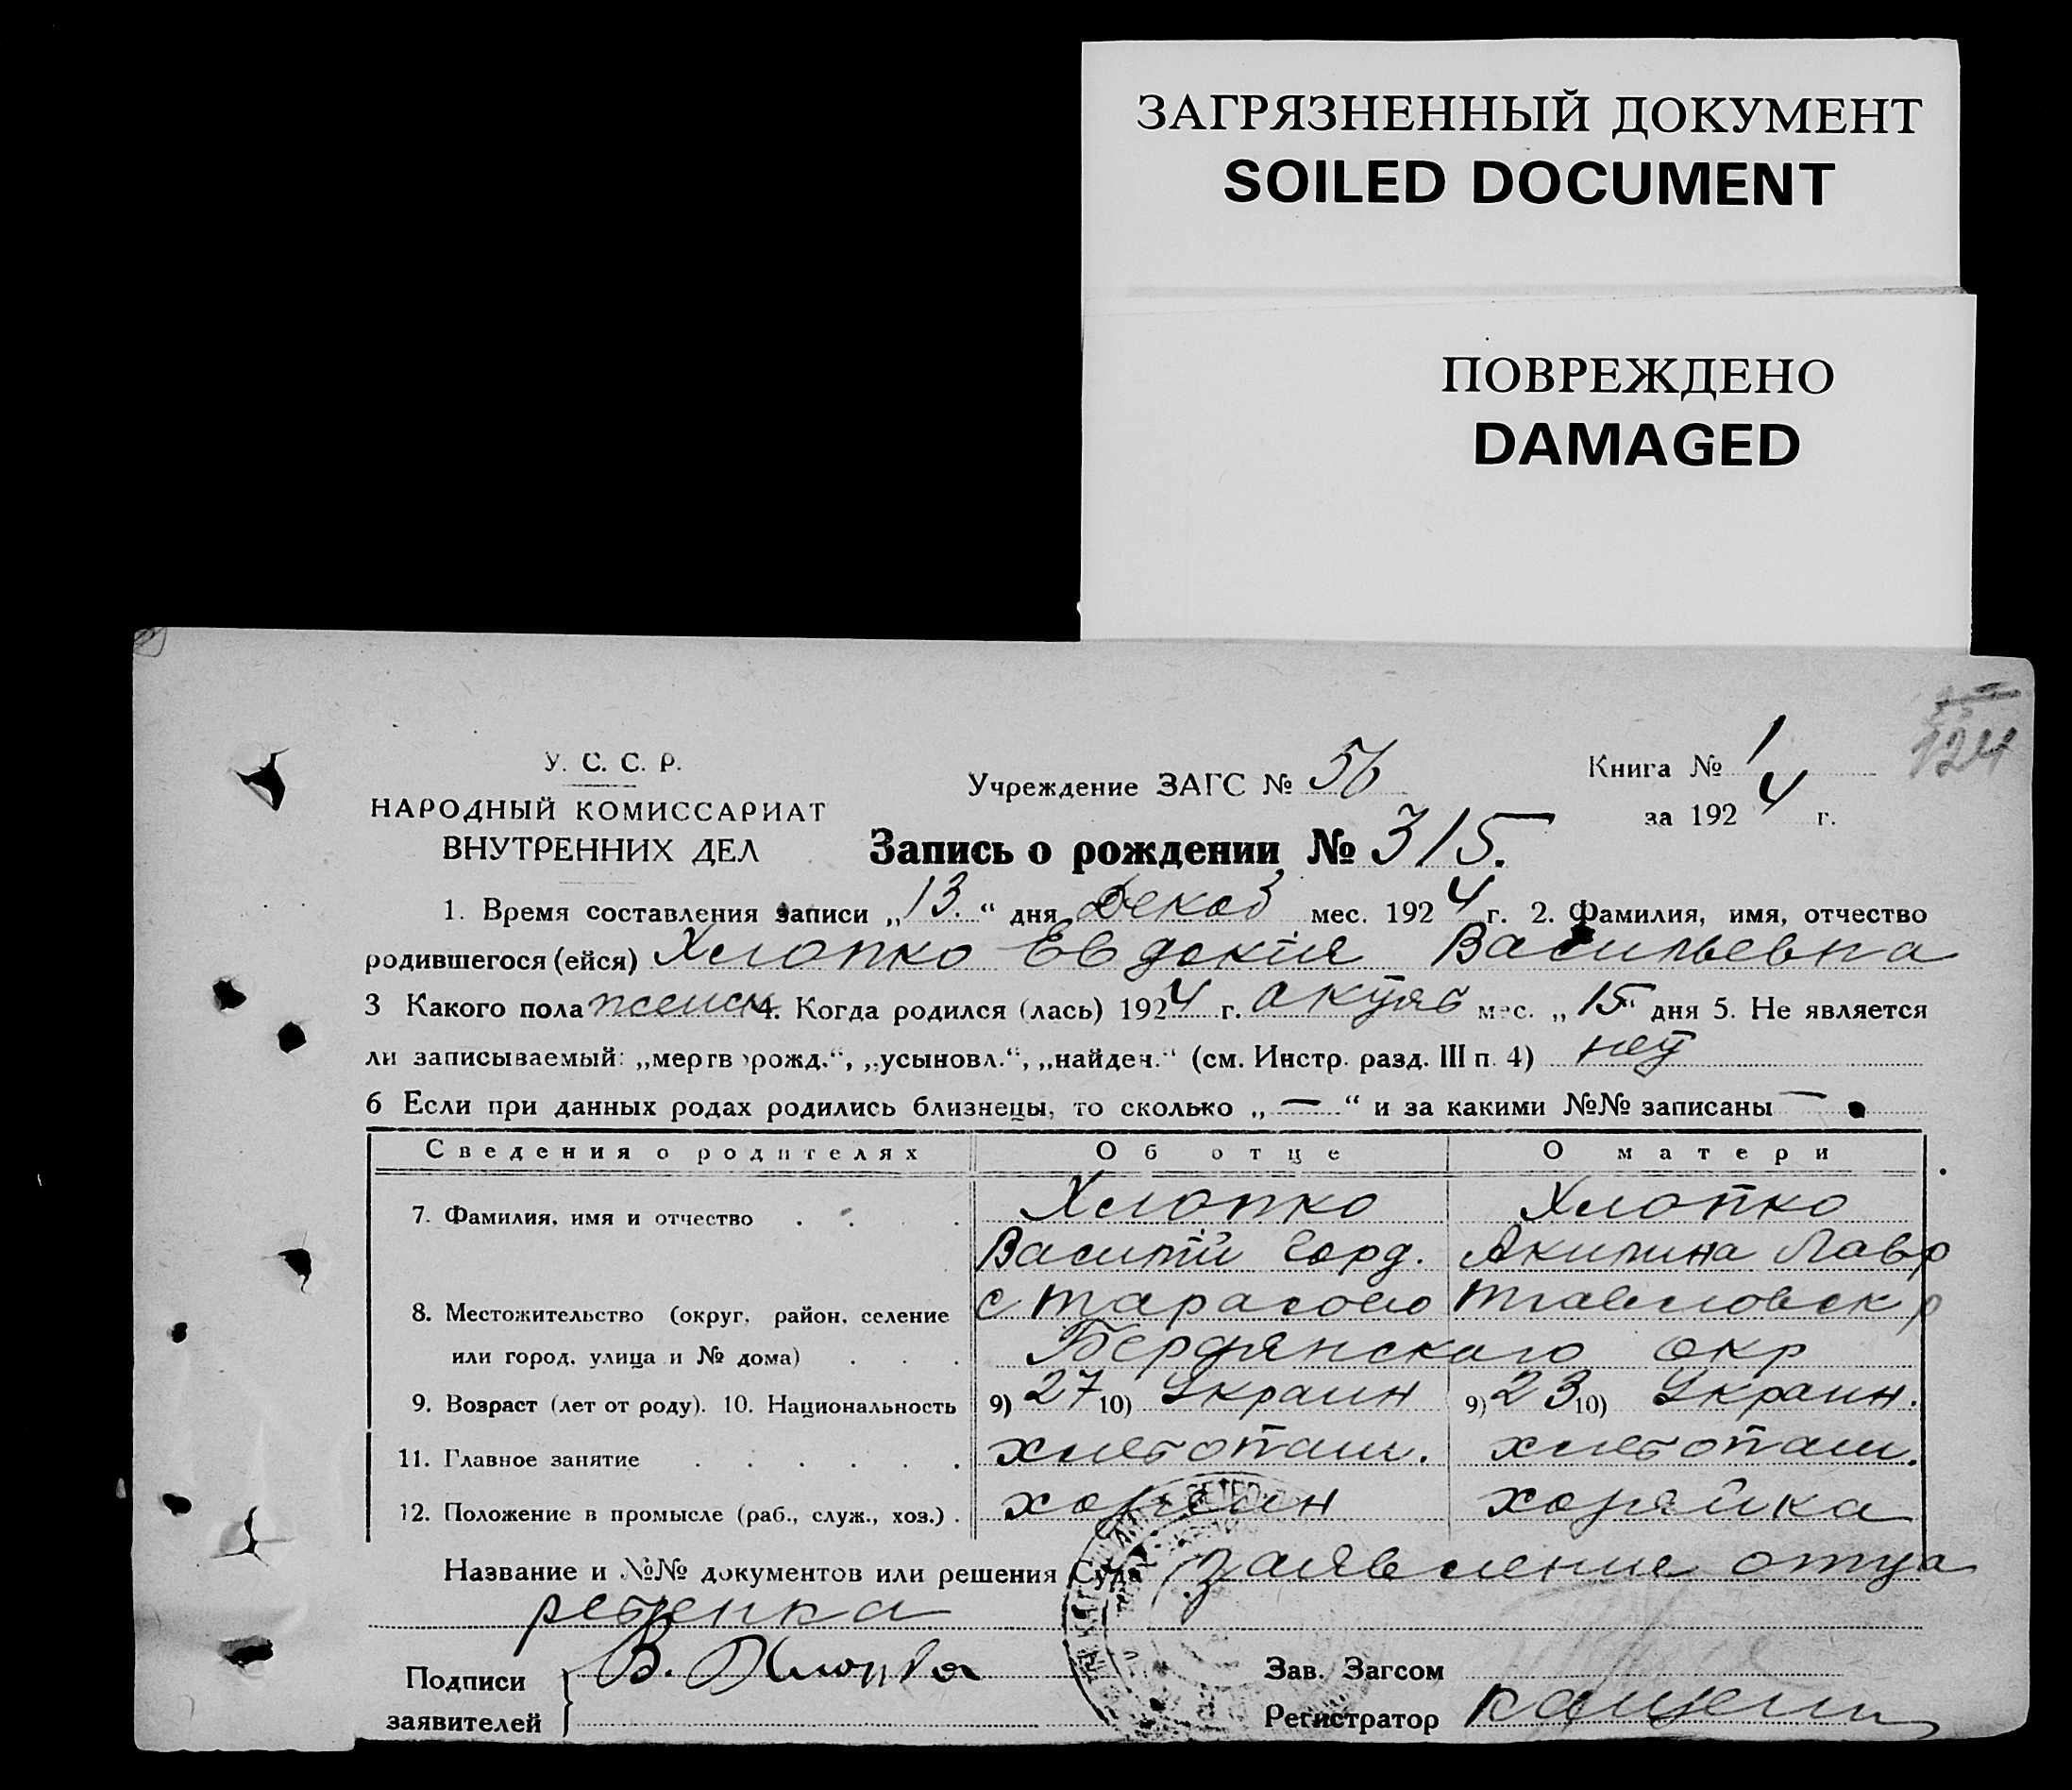 ЗАГРЯЗНЕННЫЙ ДОКУМЕНТ
SOILED DOCUMENT
ПОВРЕЖДЕНО
DAMAGED
124
У. С. С. Р.
НАРОДНЫЙ КОМИССАРИАТ
ВНУТРЕННИХ ДЕЛ
Учреждение ЗАГС № 56
Книга № 1
за 1924 г.
Запись о рождении № 315.
1. Время составления записи „13.“ дня Декаб мес. 1924 г. 2. Фамилия, имя, отчество
родившегося (ейся) Хлопко Евдокия Васильевна
3 Какого пола женск 4. Когда родился (лась) 1924 г. октяб мес. „15“ дня 5. Не является
ли записываемый: „мертворожд.“, „усыновл.“, „найден.“ (см. Инстр. разд. III п. 4) нет
6 Если при данных родах родились близнецы, то сколько „—“ и за какими №№ записаны —
Сведения о родителях Об отце О матери
7. Фамилия, имя и отчество . . . . Хлопко Хлопко
Василий Горд. Акилина Лавр
8. Местожительство (округ, район, селение с Тарасово
или город, улица и № дома) . . . Бердянского окр
9. Возраст (лет от роду). 10. Национальность 9) 27 10) Украин 9) 23 10) Украин.
11. Главное занятие . . . . . . хлебопаш. хлебопаш.
12. Положение в промысле (раб., служ., хоз.) . хозяин хозяйка
Название и №№ документов или решения Суда заявление отца
ребенка
Подписи
заявителей
В. Хлопко
Зав. Загсом
Регистратор